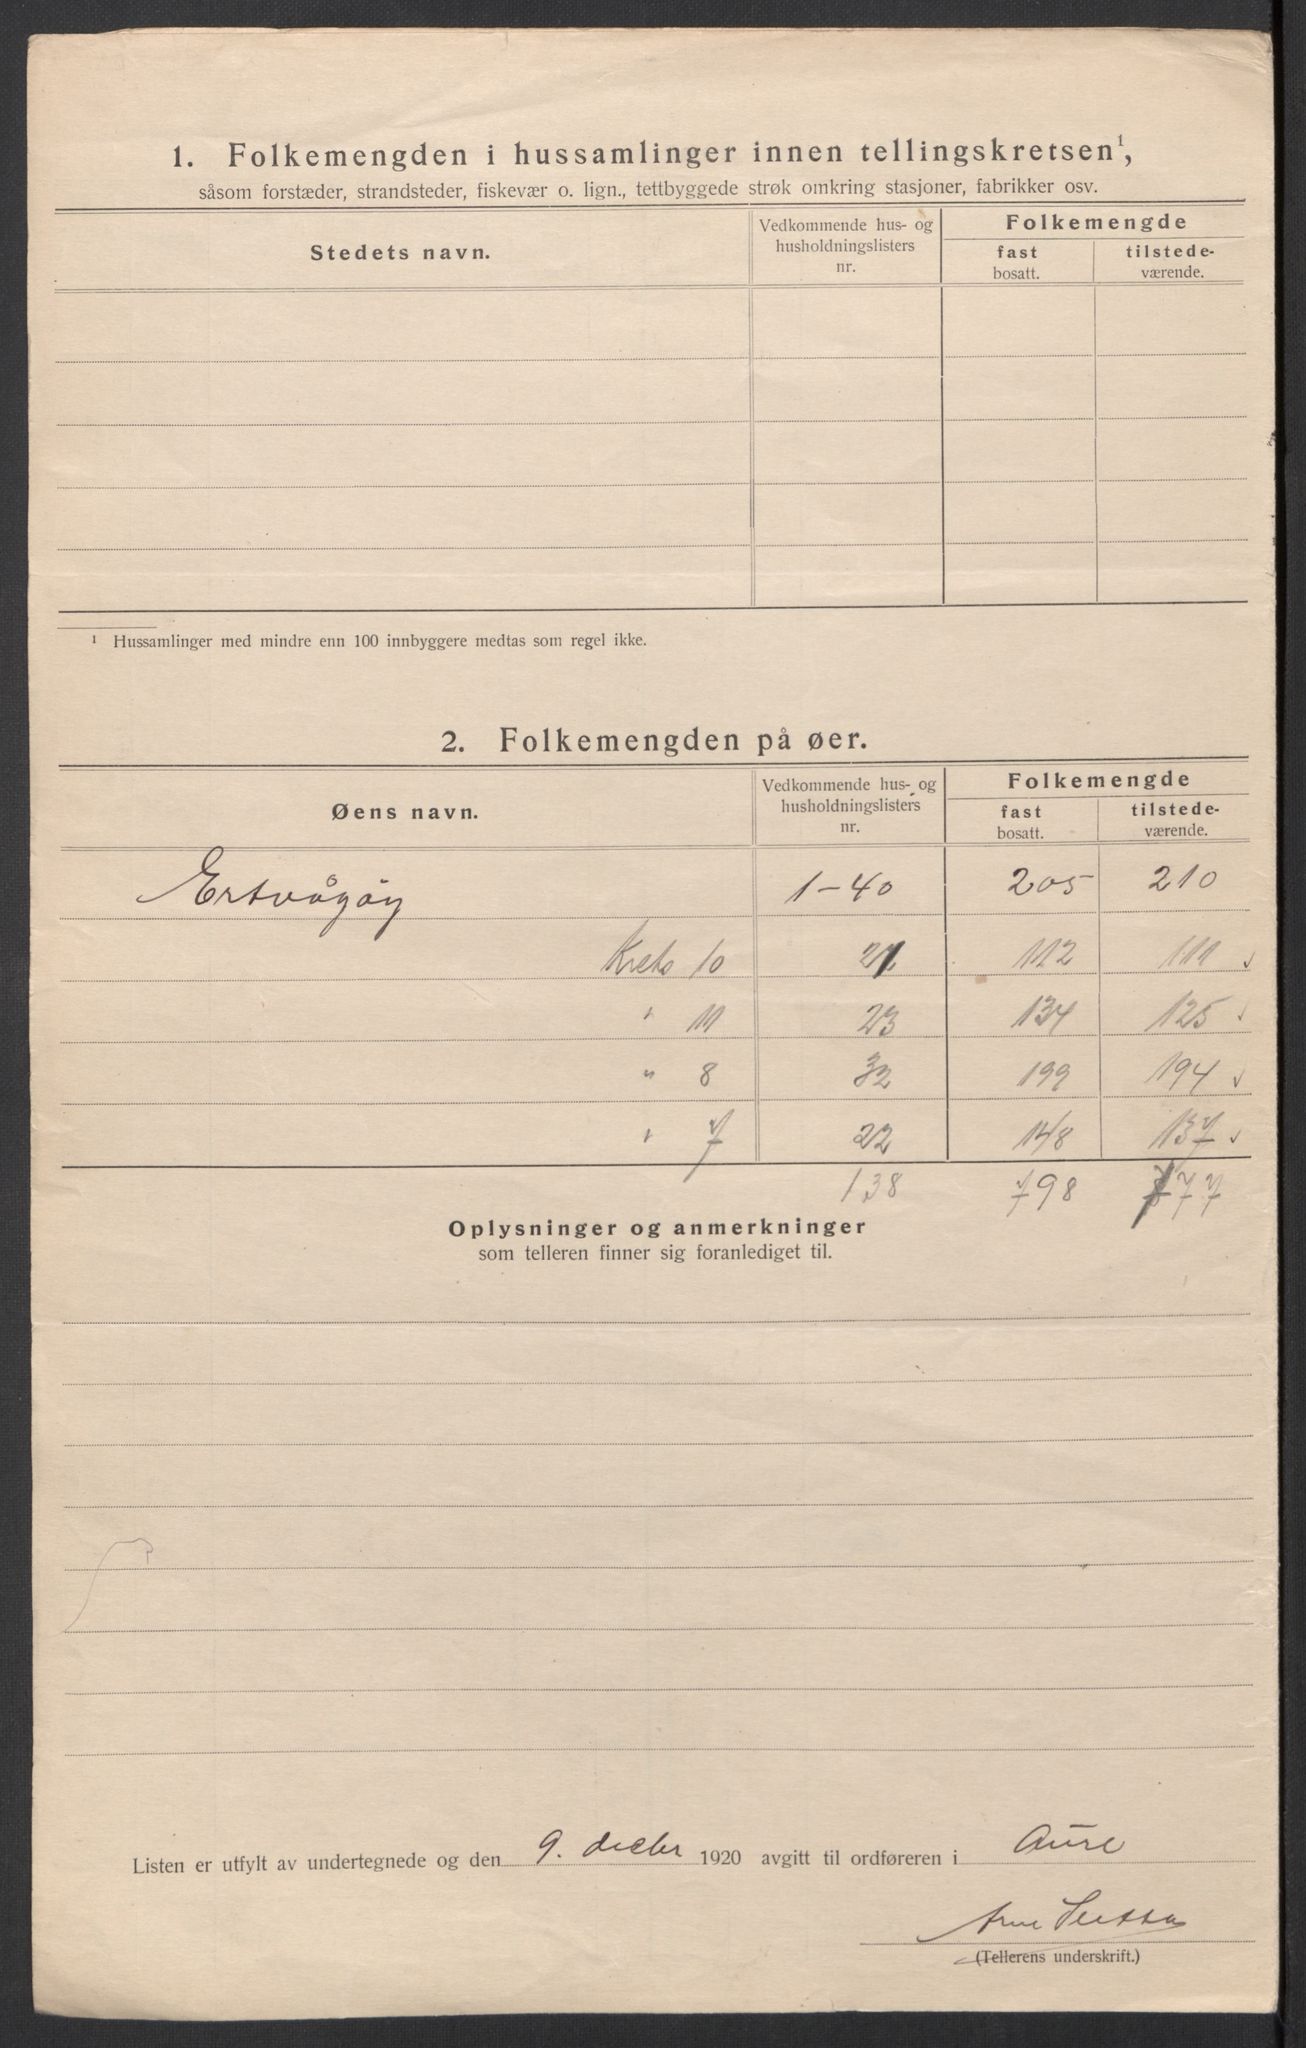 1. Folkemengden i hussamlinger innen tellingskretsen¹,
såsom forstæder, strandsteder, fiskevær o. lign., tettbyggede strøk omkring stasjoner, fabrikker osv.
Stedets navn.
Vedkommende hus- og husholdningslisters nr.
Folkemengde
fast bosatt.
tilstede-værende.
¹ Hussamlinger med mindre enn 100 innbyggere medtas som regel ikke.
2. Folkemengden på øer.
Øens navn.
Vedkommende hus- og husholdningslisters nr.
Folkemengde
fast bosatt.
tilstede-værende.
Ertvågøy 1-40 205 210
Krets 10 21 112 111
" 11 23 134 125
" 8 32 199 194
" 7 22 148 137
138 798 777
Oplysninger og anmerkninger
som telleren finner sig foranlediget til.
Listen er utfylt av undertegnede og den 9. decbr 1920 avgitt til ordføreren i Aure
Arne
(Tellerens underskrift.)